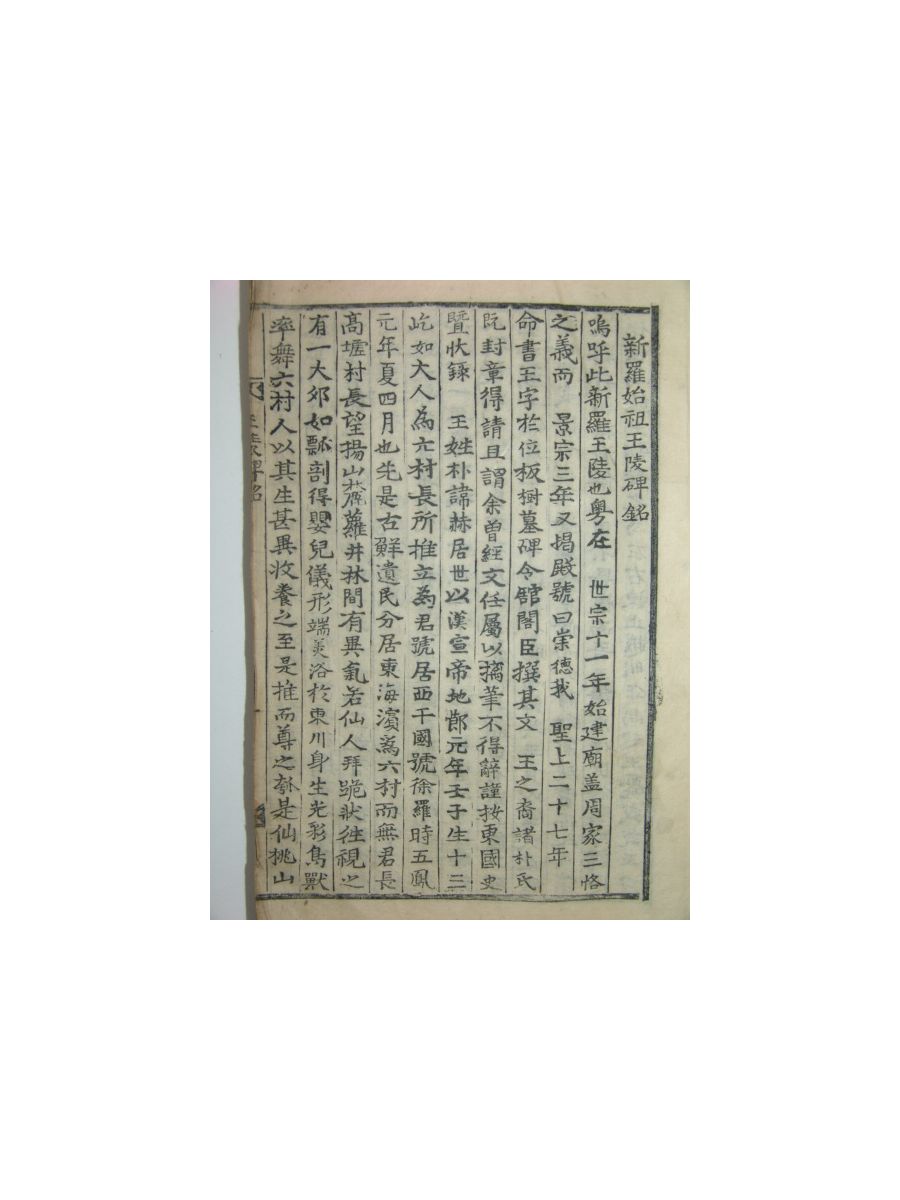 新羅始祖王陵碑銘
嗚呼此新羅王陵也粤在 世宗十一年始建廟盖周家三恪
之義而 景宗三年又揭殿號曰崇德我 聖上二十七年
命書王字於位板樹墓碑令舘閣臣撰其文 王之裔諸朴氏
既封章得請且謂余曾經文任屬以摛筆不得辭謹按東國史
曁狀錄 王姓朴諱赫居世以漢宣帝地節元年壬子生十三
屹如大人為六村長所推立為君號居西干國號徐羅時五鳳
元年夏四月也先是古鮮遺民分居東海濱為六村而無君長
高墟村長望揚山麓蘿井林間有異氣若仙人拜跪狀徃視之
有一大卵如瓢剖得嬰兒儀形端美浴於東川身生光彩鳥獸
率舞六村人以其生甚異收養之至是推而尊之 是仙桃山
王陵碑銘